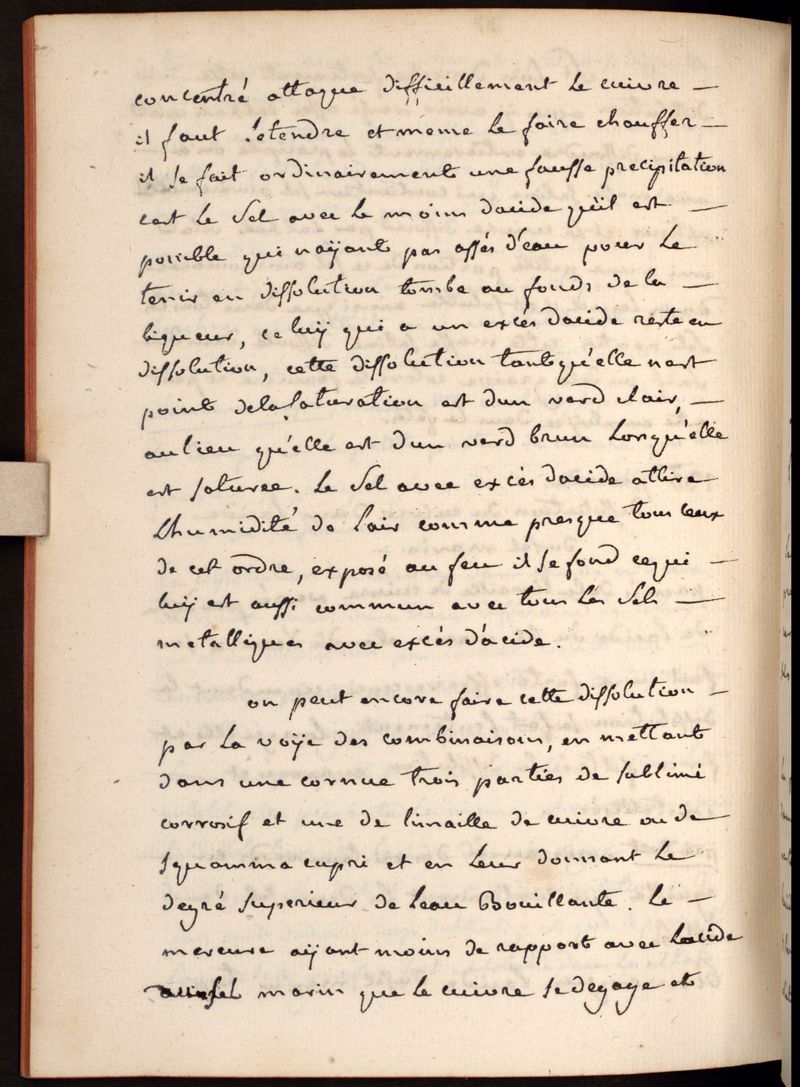 concentré attaque difficillement le cuivre —
il faut l'etendre et meme le faire chauffer —
il se fait ordinairement une fausse precipitation
cest le Sel avec le moins dacide qu'il est —
possible qui n'aÿant pas assés d'eau pour le
tenir en dissolution tombe au fonds de la —
liqueur, celuÿ qui a un excés dacide reste en
dissolution, cette dissolution tant qu'elle n'est
point de la Saturation est dun verd clair, —
au lieu qu'elle est dun verd brun Lorsqu'elle
est saturee. Le Sel avec excés dacide attire
L'humidité de l'air comme presque tous ceux
de cet ordre, exposé au feu il se fond ce qui —
luÿ est aussi commun avec tous les Sels —
metalliques avec excés d'acide.
on peut encore faire cette dissolution —
par la voÿe des combinaisons, en mettant
dans une cornue trois parties de sublimé
corrosif et une de limaille de cuivre ou de
squamma cupri et en leur donnant le
degré superieur de leau Bouillante. Le —
mercure aÿant moins de rapport avec lacide
marin que le cuivre se degage et